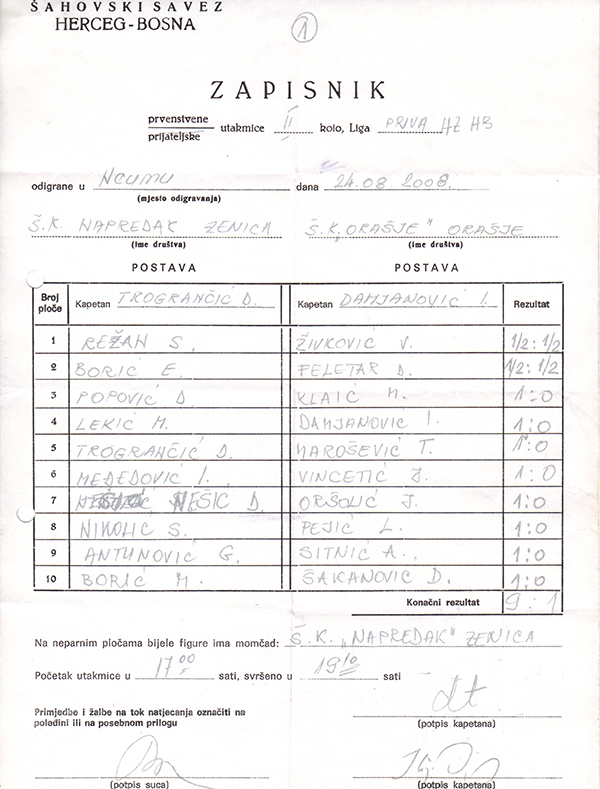 ŠAHOVSKI SAVEZ
HERCEG-BOSNA
1
ZAPISNIK
prvenstvene
prijateljske utakmice II kolo, Liga PRIVA HZ HB
odigrane u NEUMU dana 24.08.2008.
(mjesto odigravanja)
Š.K. NAPREDAK ZENICA Š.K. „ORAŠJE" ORAŠJE
(ime društva) (ime društva)
POSTAVA POSTAVA
Broj ploče Kapetan TROGRANČIĆ D. Kapetan DAMJANOVIĆ I. Rezultat
1 REŽAN S. ŽIVKOVIĆ V. 1/2:1/2
2 BORIĆ E. PELETAR D. 1/2:1/2
3 POPOVIĆ D. KLAIĆ M. 1:0
4 LEKIĆ M. DAMJANOVIĆ I. 1:0
5 TROGRANČIĆ D. MAROŠEVIĆ T. 1:0
6 MEĐEDOVIĆ I. VINCETIĆ J. 1:0
7 NEŠIĆ D. ORŠOLIĆ J. 1:0
8 NIKOLIĆ S. PEJIĆ L. 1:0
9 ANTUNOVIĆ G. SITNIĆ A. 1:0
10 BORIĆ M. ŠAKANOVIĆ D. 1:0
Konačni rezultat 9:1
Na neparnim pločama bijele figure ima momčad: Š.K. „NAPREDAK" ZENICA
Početak utakmice u 17 00 sati, svršeno u 19 10 sati
Primjedbe i žalbe na tok natjecanja označiti na
poleđini ili na posebnom prilogu
(potpis kapetana)
(potpis suca) (potpis kapetana)